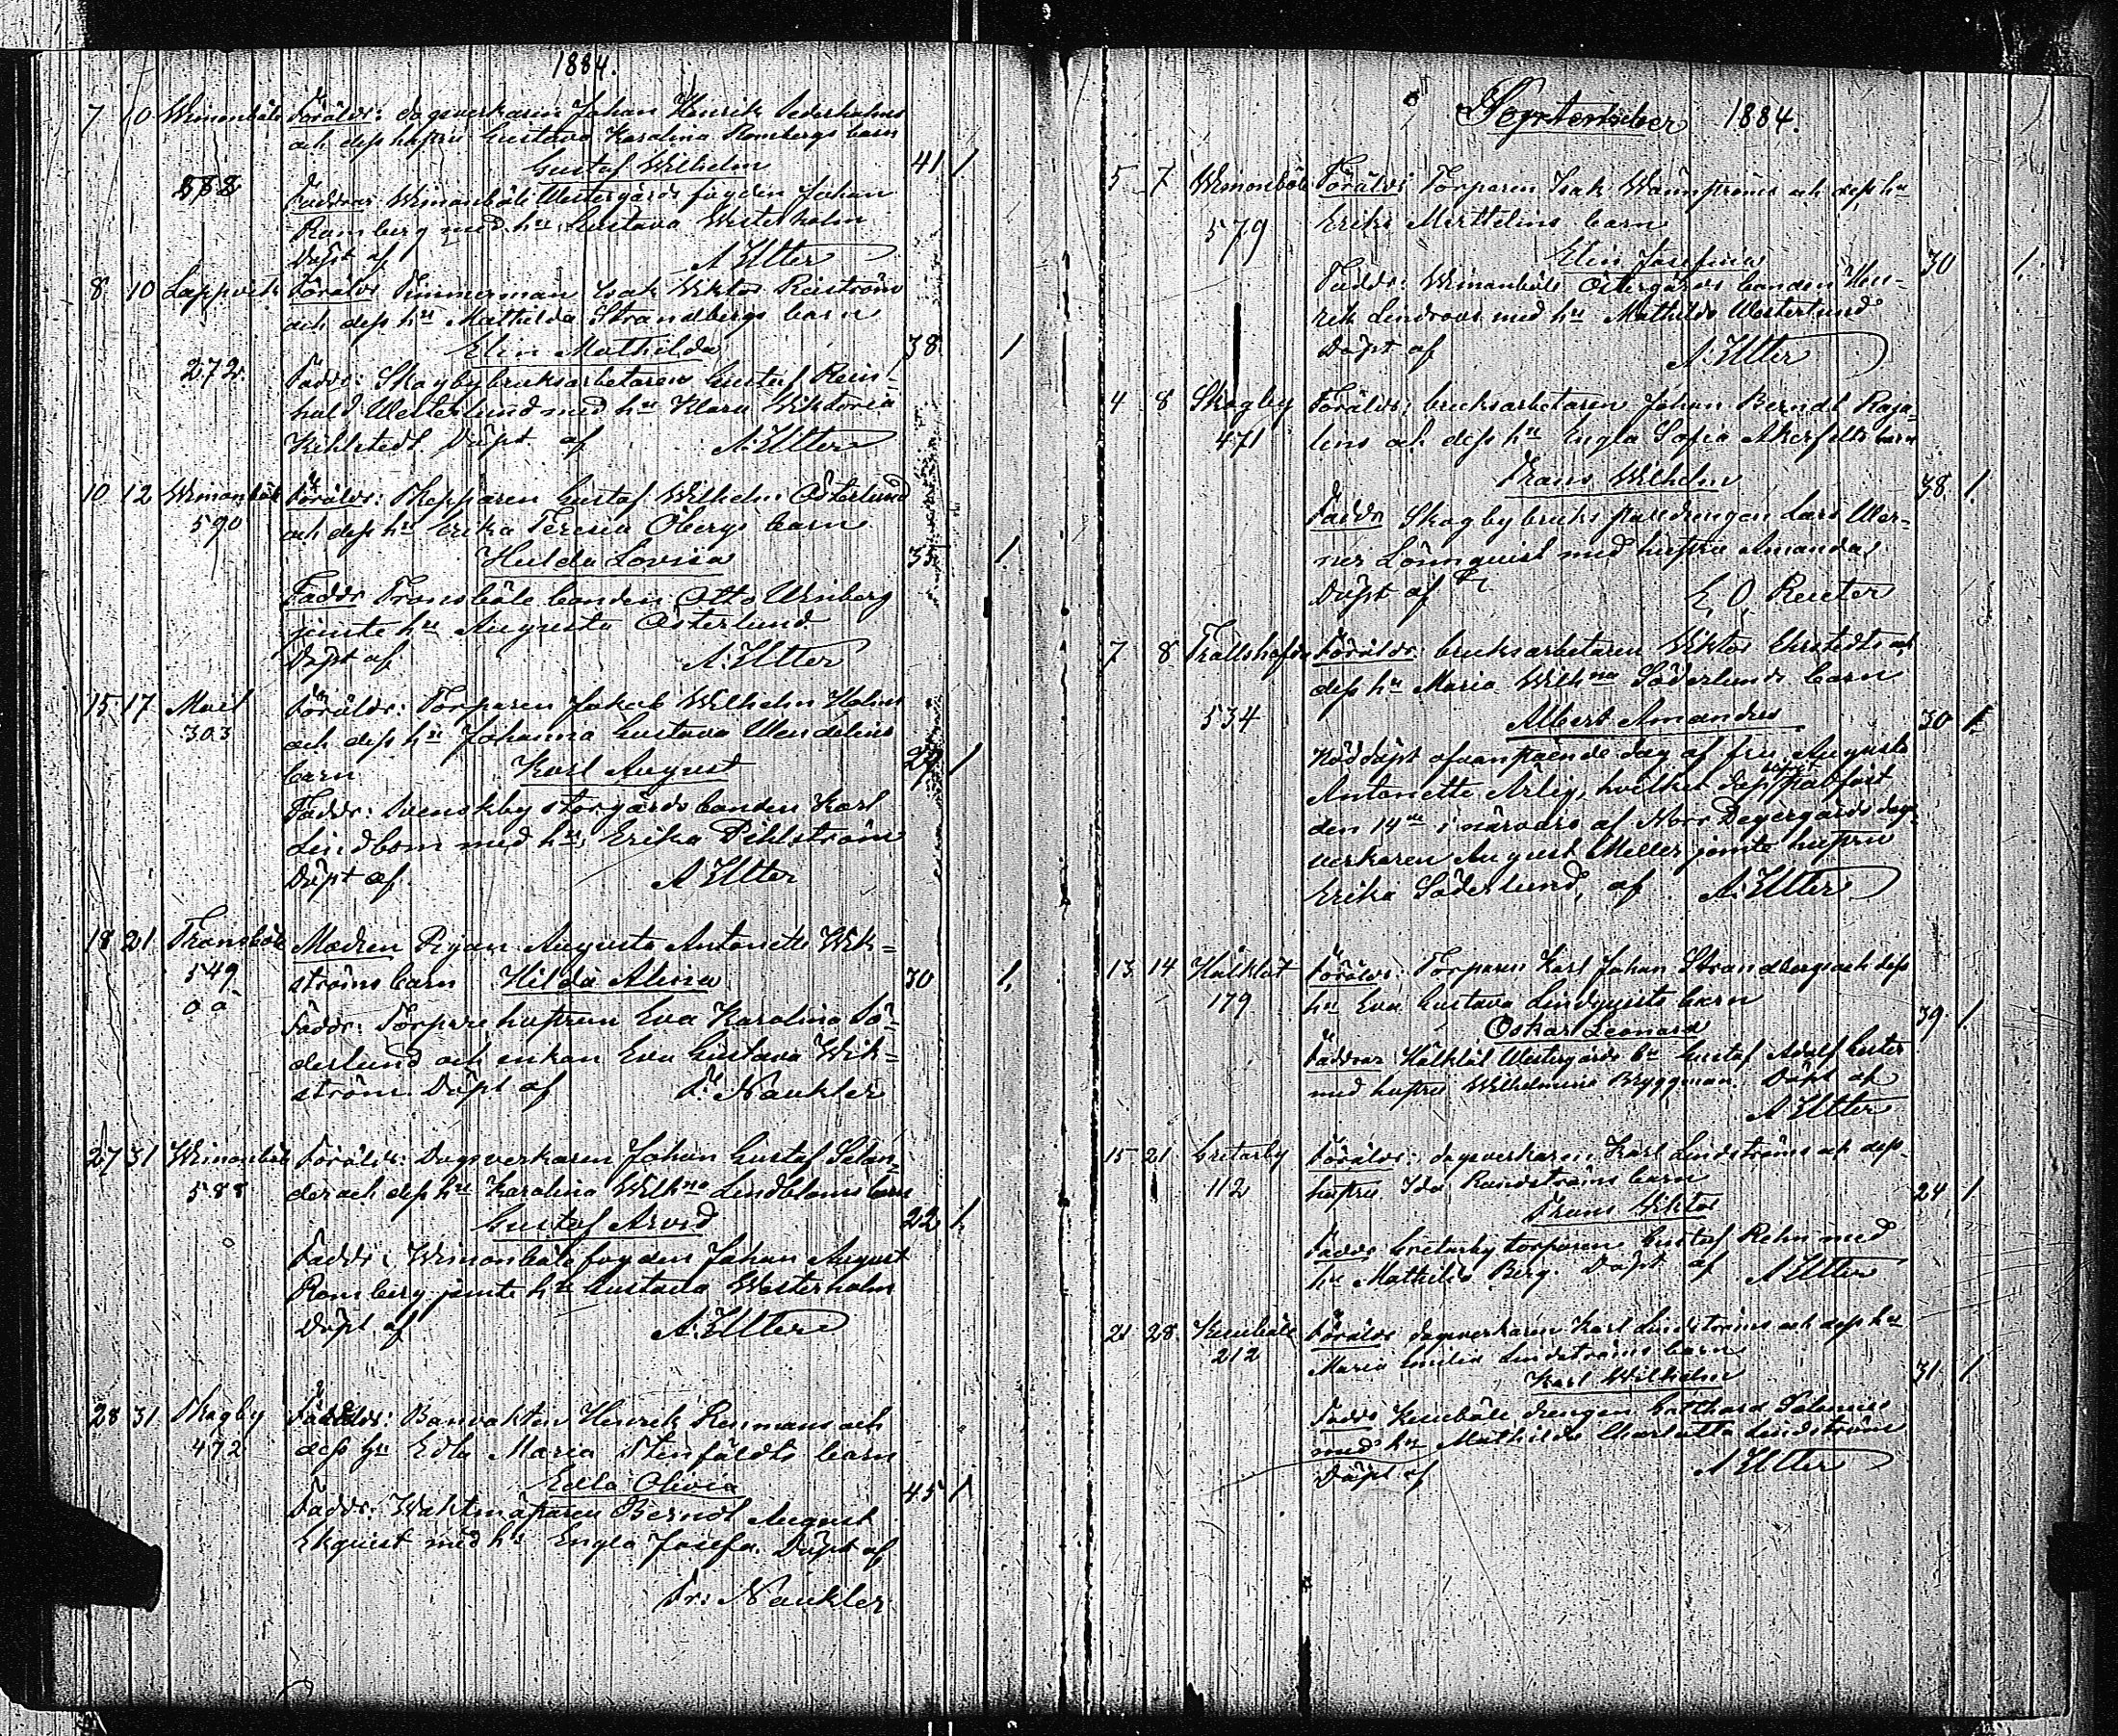 1884.
7 10 Wimonböle Föräldr: dagsverkaren Johan Henrik Sederholms
och dess hustru Gustava Karolina Rombergs barn
Gustaf Wilhelm 41 1
588
Faddrar Wimonböle Westergårds fogden Johan
Romberg med hu Gustava Westerholm
Döpt af A. Utter
8 10 Lappvik Föräldr Timmerman Isak Viktor Riström
och dess hu Mathilda Strandbergs barn
Elin Mathilda 38 1
272. Faddr: Skogby bruksarbetaren Gustaf Rein-
hold Westerlund med hu Klara Viktoria
Kihlstedt Döpt af A. Utter
10 12 Wimonböle Föräldr: Skepparen Gustaf Wilhelm Österlund
590 och dess hu Erika Teresia Öbergs barn
Hulda Lovisa 35 1.
Faddr Fransböle bonden Otto Winberg
jemte hu Augusta Österlund
Döpt af A. Utter
15 17 Moit Föräldr: Torparen Jakob Wilhelm Holms
303 och dess hu Johanna Gustava Wendelins
barn Karl August 29 1
Faddr: Svenskby storgårds bonden Karl
Lindbom med hu Erika Pihlström
Döpt af A Utter
18 21 Fransböle Modren Pigan Augusta Antonette Wik-
549 ströms barn Hilda Alina 30 1.
o ä
Faddr: Torpare hustrun Eva Karolina Sö-
derlund och enkan Eva Gustava Wik-
ström Döpt af Fr Naukler
27 31 Wimonböle Föräldr: Dagsverkaren Johan Gustaf Selan-
588 der och dess hu Karolina Wilhna Lindbloms barn
Gustaf Arvid 22 1.
Faddr: Wimonböle fogden Johan August
Romberg jemte hu Gustava Westerholm
Döpt af A. Utter
28 31 Skogby Föräldr: Banvakten Henrik Renmans och
472 dess hu Edla Maria Stenfäldts barn
Edla Olivia 45 1
Faddr: Waktmästaren Berndt August
Ekquist med hu Engla Josefa. Döpt af
Fr: Naukler
September 1884.
5 7 Wimonböle Föräldr Torparen Isak Wännströms och dess hu
579 Erika Merttelins barn
Elin Josefina 30 1.
Faddr: Wimonböle Östergårds bonden Hen-
rik Lindroos med hu Mathilda Westerlund
Döpt af A. Utter
4 8 Skogby Föräldr: bruksarbetaren Johan Berndt Roja-
471 lins och dess hu Engla Sofia Akerfelts barn
Frans Wilhelm 38 1.
Faddr Skogby bruks stalldrängen Lars Wer-
ner Lönnquist med hustru Amanda
Döpt af E. O. Reuter
7 8 Trällshofda Föräldr: bruksarbetaren Viktor Ehrstedts och
dess hu Maria Wilhna Söderlunds barn
534 Albert Amandus 30 1
Nöddöpt ofvanstående dag af fru Augusta
Antonette Arlig, hvilket dop stadfäst
den 14de i närvaro af Norr Degergårds dags-
verkaren August Meller jemte hustru
Erika Söderlund, af A. Utter
13 14 Hälklöt Föräldr: Torparen Karl Johan Strandbergs och dess
179 hu Eva Gustava Lindqvists barn
Oskar Leonard 39 1.
Faddrar Hälklöt Westergårds bn Gustaf Adolf Guster
med hustru Wilhelmina Bryggman. Döpt af
A Utter
15 21 Gretarby Föräldr: dagsverkaren Karl Lindströms och dess
112 hustru Ida Randströms barn 24 1
Frans Viktor
Faddr Gretarby torparen Gustaf Rehn med
hu Mathilda Berg. Döpt af A Utter
21 28 Kumböle Föräldr dagsverkaren Karl Lindströms och dess hu
212 Maria Emilia Lindströms barn
Karl Wilhelm 31 1
Faddr Kumböle drengen Gotthard Salenius
med hu Mathilda Charlotta Lindström
Döpt af A Utter